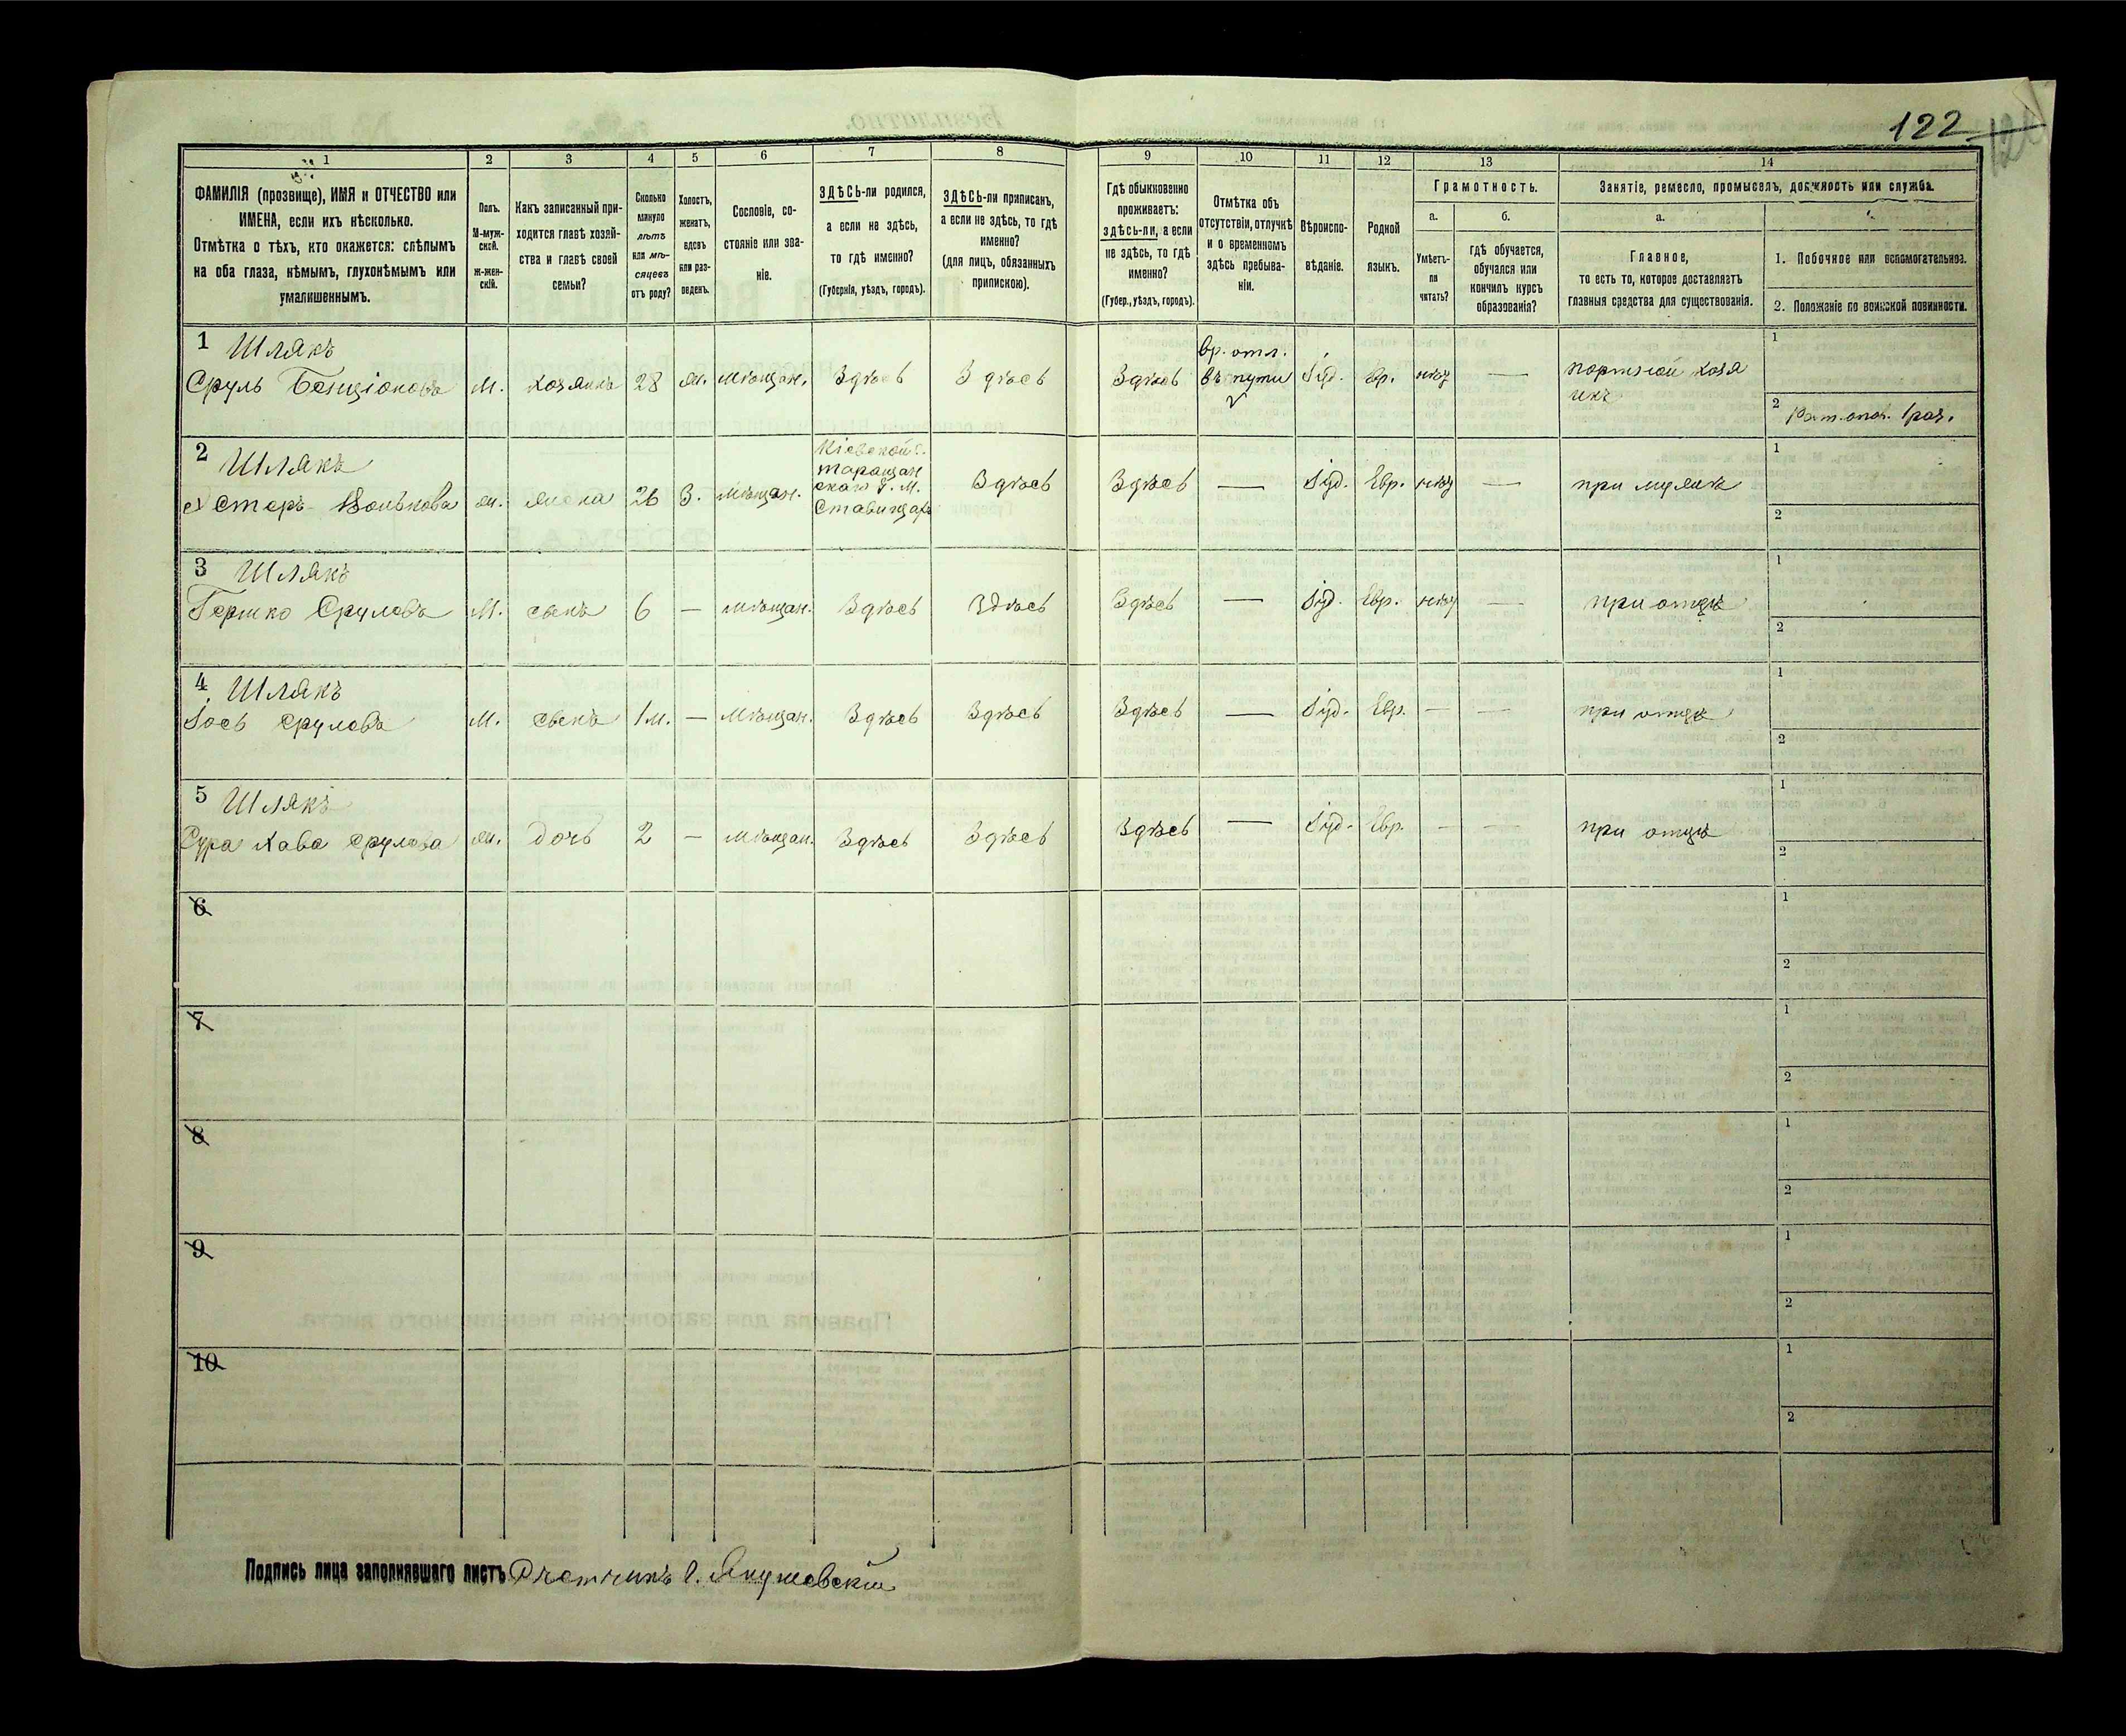 122
1 2 3 4 5 6 7 8 9 10 11 12 13 14
ФАМИЛІЯ (прозвище), ИМЯ и ОТЧЕСТВО или
ИМЕНА, если ихъ нѣсколько.
Отмѣтка о тѣхъ, кто окажется: слѣпымъ
на оба глаза, нѣмымъ, глухонѣмымъ или
умалишеннымъ.
Полъ.
М-муж-
ской.
ж-жен-
скій.
Какъ записанный при-
ходится главѣ хозяй-
ства и главѣ своей
семьи?
Сколько
минуло
лѣтъ
или мѣ-
сяцевъ
отъ роду?
Холостъ,
женатъ,
вдовъ
или раз-
веденъ.
Сословіе, со-
стояніе или зва-
ніе.
ЗДѢСЬ-ли родился,
а если не здѣсь,
то гдѣ именно?
(Губернія, уѣздъ, городъ).
ЗДѢСЬ-ли приписанъ,
а если не здѣсь, то гдѣ
именно?
(для лицъ, обязанныхъ
припискою).
Гдѣ обыкновенно
проживаетъ:
здѣсь-ли, а если
не здѣсь, то гдѣ
именно?
(Губер., уѣздъ, городъ).
Отмѣтка объ
отсутствіи, отлучкѣ
и о временномъ
здѣсь пребыва-
ніи.
Вѣроиспо-
вѣданіе.
Родной
языкъ.
Грамотность.
а.
Умѣетъ-
ли
читать?
б.
гдѣ обучается,
обучался или
кончилъ курсъ
образованія?
Занятіе, ремесло, промыселъ, должность или служба.
а.
Главное,
то есть то, которое доставляетъ
главныя средства для существованія.
1. Побочное или вспомогательное.
2. Положеніе по воинской повинности.
1 Шлякъ
Сруль Бенціоновъ М. хозяинъ 28 ж. мѣщан. Здѣсь Здѣсь Здѣсь вр. отл. въ пути Іуд. Евр. нѣт — портной хозя
инъ
1
2 Рат. опол. 1 раз.
2 Шлякъ
Эстеръ Волькова ж. жена 26 З. мѣщан. Кіевской г. Таращан
скаго у. М. Ставищах Здѣсь Здѣсь — Іуд. Евр. нѣт — при мужѣ
1
2
3 Шлякъ
Гершко Срулевъ М. сынъ 6 — мѣщан. Здѣсь Здѣсь Здѣсь — Іуд. Евр. нѣт — при отцѣ
1
2
4 Шлякъ
Іось Срулевъ М. сынъ 1 м. — мѣщан. Здѣсь Здѣсь Здѣсь — Іуд. Евр. — — при отцѣ
1
2
5 Шлякъ
Сура Хава Срулева ж. дочь 2 — мѣщан. Здѣсь Здѣсь Здѣсь — Іуд. Евр. — — при отцѣ
1
2
6
1
2
7
1
2
8
1
2
9
1
2
10
1
2
Подпись лица заполнявшаго листъ Счетчикъ С. Якушевскій